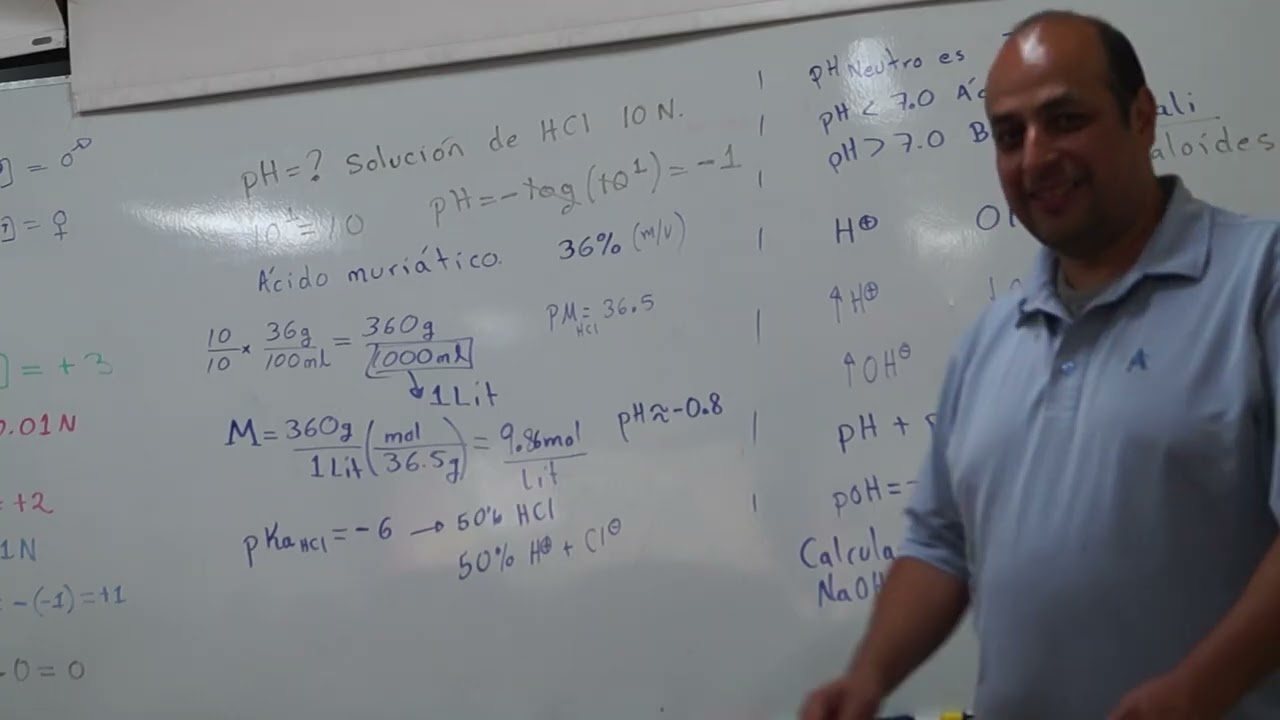 ] = 0
] = ♀
] = +3
0.01N
= +2
1N
= -(-1) = +1
- 0 = 0
pH=? Solución de HCl 10 N.
10¹ = 10 pH=-log(10¹)=-1
Ácido muriático. 36% (m/v)
PM HCl = 36.5
10/10 × 36g/100ml = 360g/1000ml
↓ 1Lit
M = 360g/1Lit (mol/36.5g) = 9.86mol/Lit pH≈-0.8
pKa HCl = -6 → 50% HCl
50% H⊕ + Cl⊖
pH Neutro es
pH < 7.0 Ác
pH > 7.0 B
ali
aloides
H⊕ O
↑H⊕
↑OH⊖
pH +
pOH=-
Calcula
NaOH
A